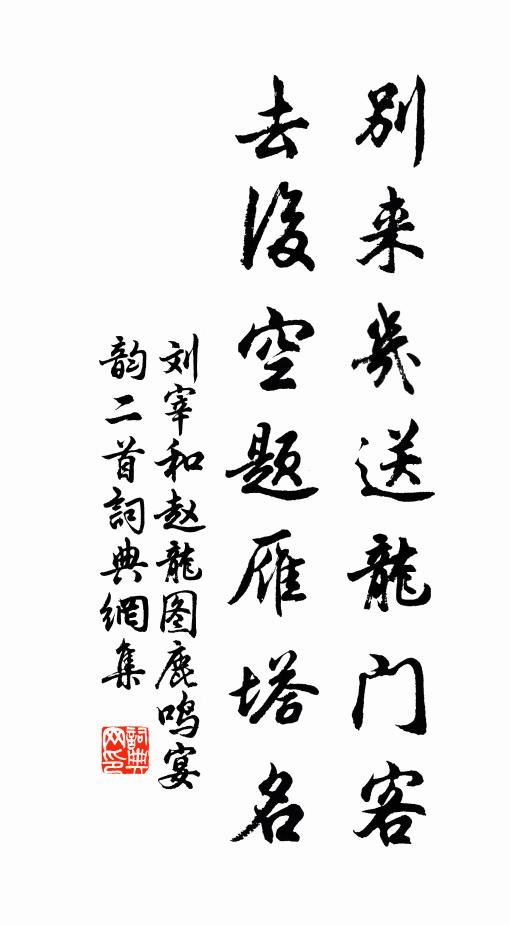 别来几送龍门客
去後空题雁塔名
刘宰和赵龍图鹿鸣宴
韵二首詞典網集
詞典
网印